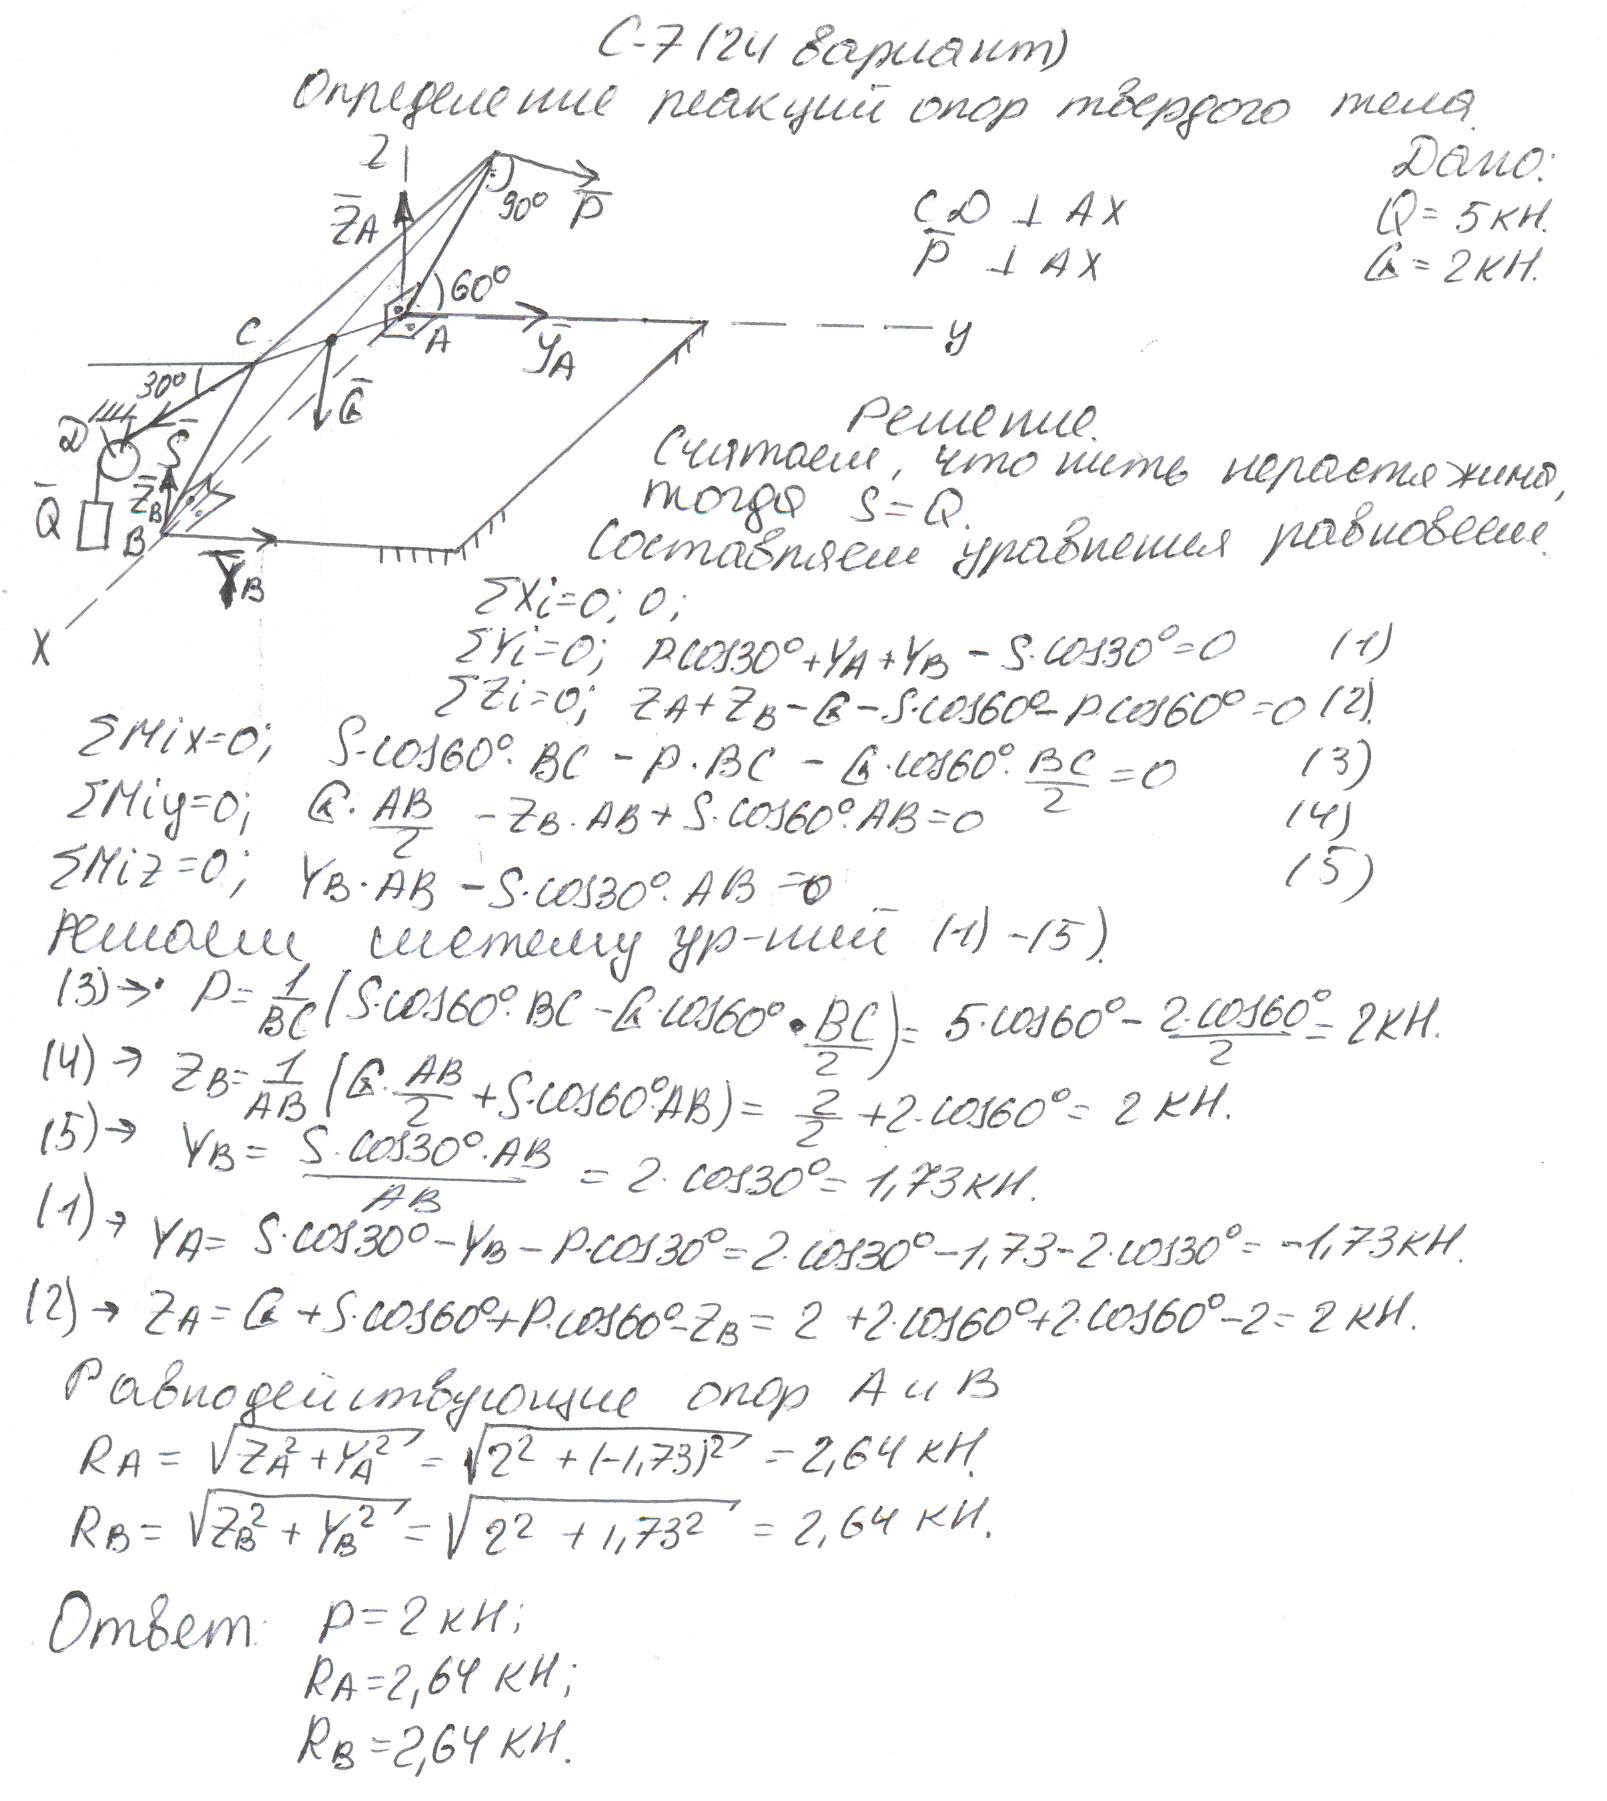 С-7 (24 вариант)
Определение реакций опор твердого тела.
Дано:
CD ⊥ AX
Q = 5 кН.
P̅ ⊥ AX
G = 2 кН.
Z
Z̅A
90°
P̅
60°
A
y̅A
y
C
30°
G̅
D
S̅
Q̅
Z̅B
B
Y̅B
X
Решение.
Считаем, что нить нерастяжима,
тогда S=Q.
Составляем уравнения равновесия.
ΣXi=0; 0;
ΣYi=0; P.cos30°+YA+YB - S.cos30°=0 (1)
ΣZi=0; ZA+ZB-G-S.cos60°-P.cos60°=0 (2).
ΣMix=0; S.cos60°. BC - P.BC - G.cos60°. BC/2 = 0 (3)
ΣMiy=0; G. AB/2 - ZB.AB + S.cos60°.AB=0 (4)
ΣMiz=0; YB.AB - S.cos30°.AB =0 (5)
Решаем систему ур-ний (1)-(5).
(3)→ P= 1/BC (S.cos60°.BC - G.cos60°. BC/2) = 5.cos60° - 2.cos60°/2 = 2кН.
(4)→ ZB= 1/AB (G. AB/2 + S.cos60°.AB) = 2/2 + 2.cos60°= 2 кН.
(5)→ YB= S.cos30°.AB/AB = 2.cos30°= 1,73кН.
(1)→ YA= S.cos30°-YB-P.cos30°=2.cos30°-1,73-2.cos30°= -1,73кН.
(2)→ ZA= G+S.cos60°+P.cos60°-ZB= 2 +2.cos60°+2.cos60°-2= 2 кН.
Равнодействующие опор А и В
RA = √ZA²+YA² = √2² + (-1,73)² = 2,64 кН.
RB = √ZB² + YB² = √2² + 1,73² = 2,64 кН.
Ответ: P=2 кН;
RA=2,64 кН;
RB=2,64 кН.